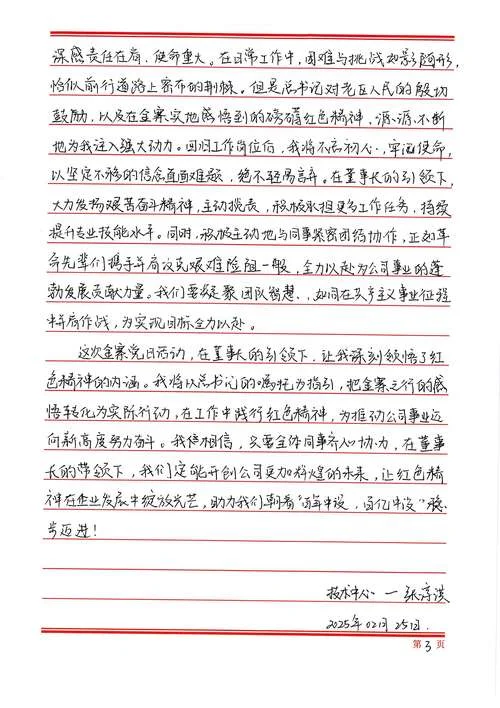 深感责任在肩，使命重大。在日常工作中，困难与挑战如影随形，
恰似前行道路上密布的荆棘。但是总书记对老区人民的殷切
鼓励，以及在金寨实地感悟到的磅礴红色精神，源源不断
地为我注入强大动力。回归工作岗位后，我将不忘初心，牢记使命，
以坚定不移的信念直面难题，绝不轻易言弃。在董事长的引领下，
大力发扬艰苦奋斗精神，主动揽责，积极承担更多工作任务，持续
提升专业技能水平。同时，积极主动地与同事紧密团结协作，正如革
命先辈们携手并肩攻克艰难险阻一般，全力以赴为公司事业的蓬
勃发展贡献力量。我们要凝聚团队智慧、如同在共产主义事业征程
中并肩作战，为实现目标全力以赴。
这次金寨党日活动，在董事长的引领下，让我深刻领悟了红
色精神的内涵。我将以总书记的嘱托为指引，把金寨之行的感
悟转化为实际行动，在工作中践行红色精神，为推动公司事业迈
向新高度努力奋斗。我倍相信，只要全体同事齐心协力，在董事
长的带领下，我们定能开创公司更加辉煌的未来，让红色精
神在企业发展中绽放光芒，助力我们朝着“百年中设，百亿中设”稳
步迈进！
技术中心 — 张淳淇
2025年02月25日.
第3页